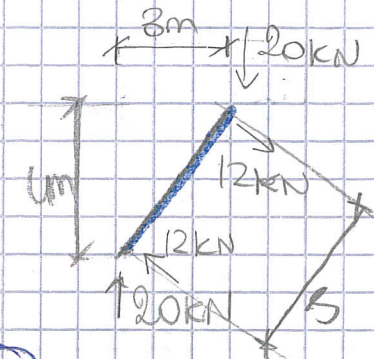 3m
20KN
4m
12KN
12KN
20KN
5